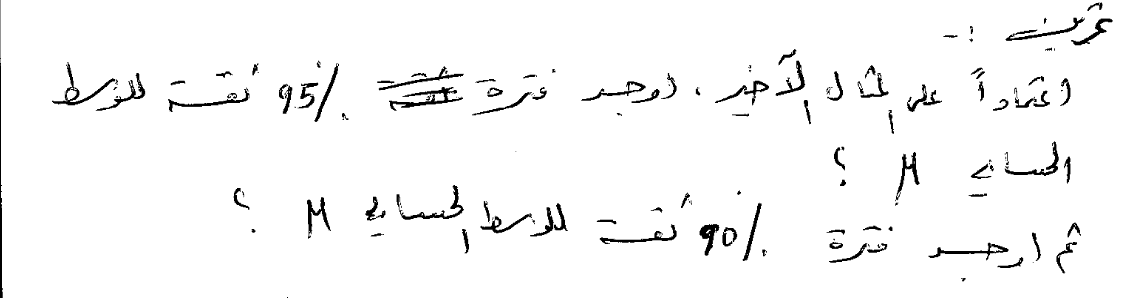 تمرين :-
اعتماداً على المثال الأخير، اوجد فترة 95% ثقة للوسط
الحسابي μ ؟
ثم اوجد فترة 90% ثقة للوسط الحسابي μ ؟